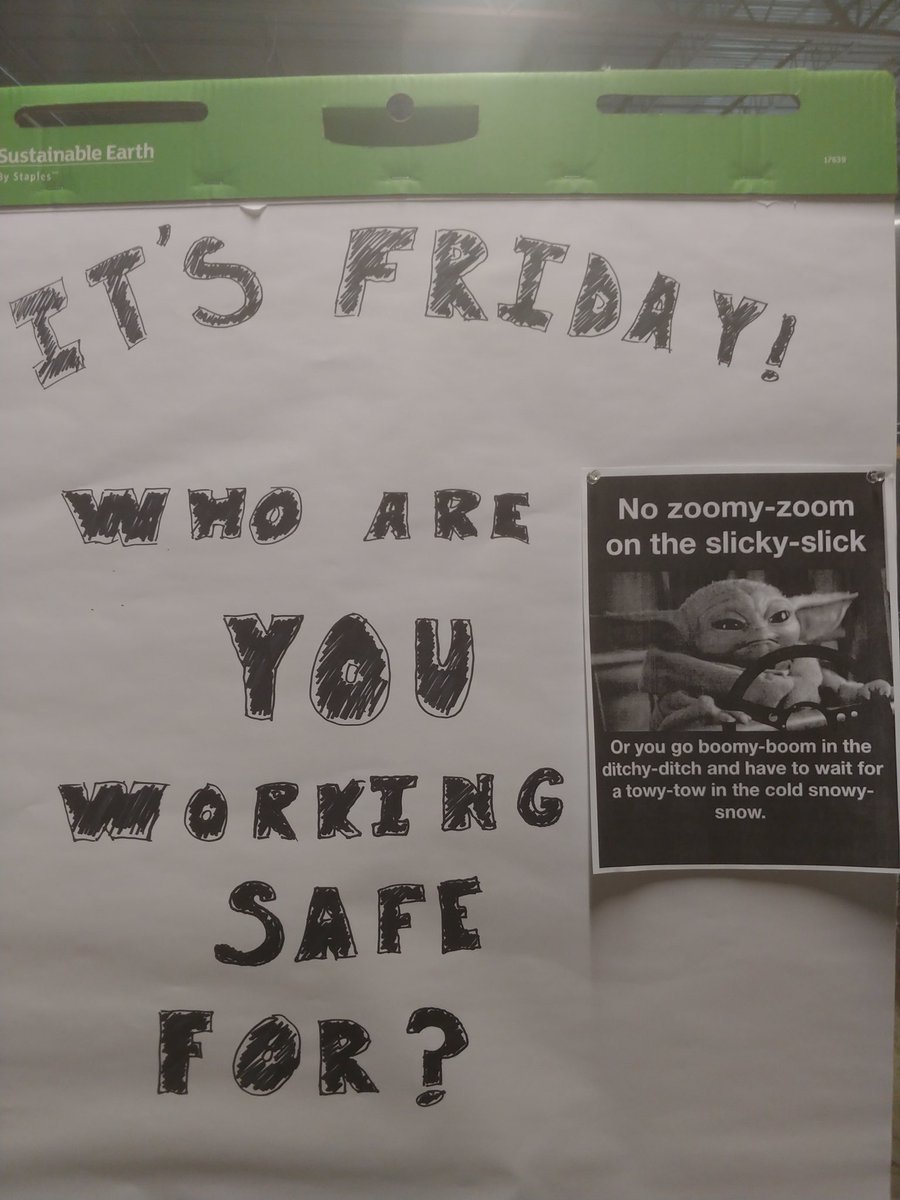 Sustainable Earth
By Staples™
17639
IT'S FRIDAY!
WHO ARE
YOU
WORKING
SAFE
FOR?
No zoomy-zoom
on the slicky-slick
Or you go boomy-boom in the
ditchy-ditch and have to wait for
a towy-tow in the cold snowy-
snow.